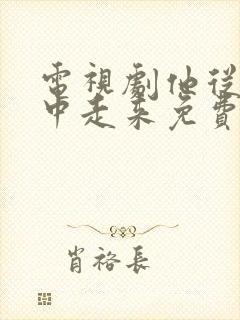 電視劇他從
中走来免費
肖裕長